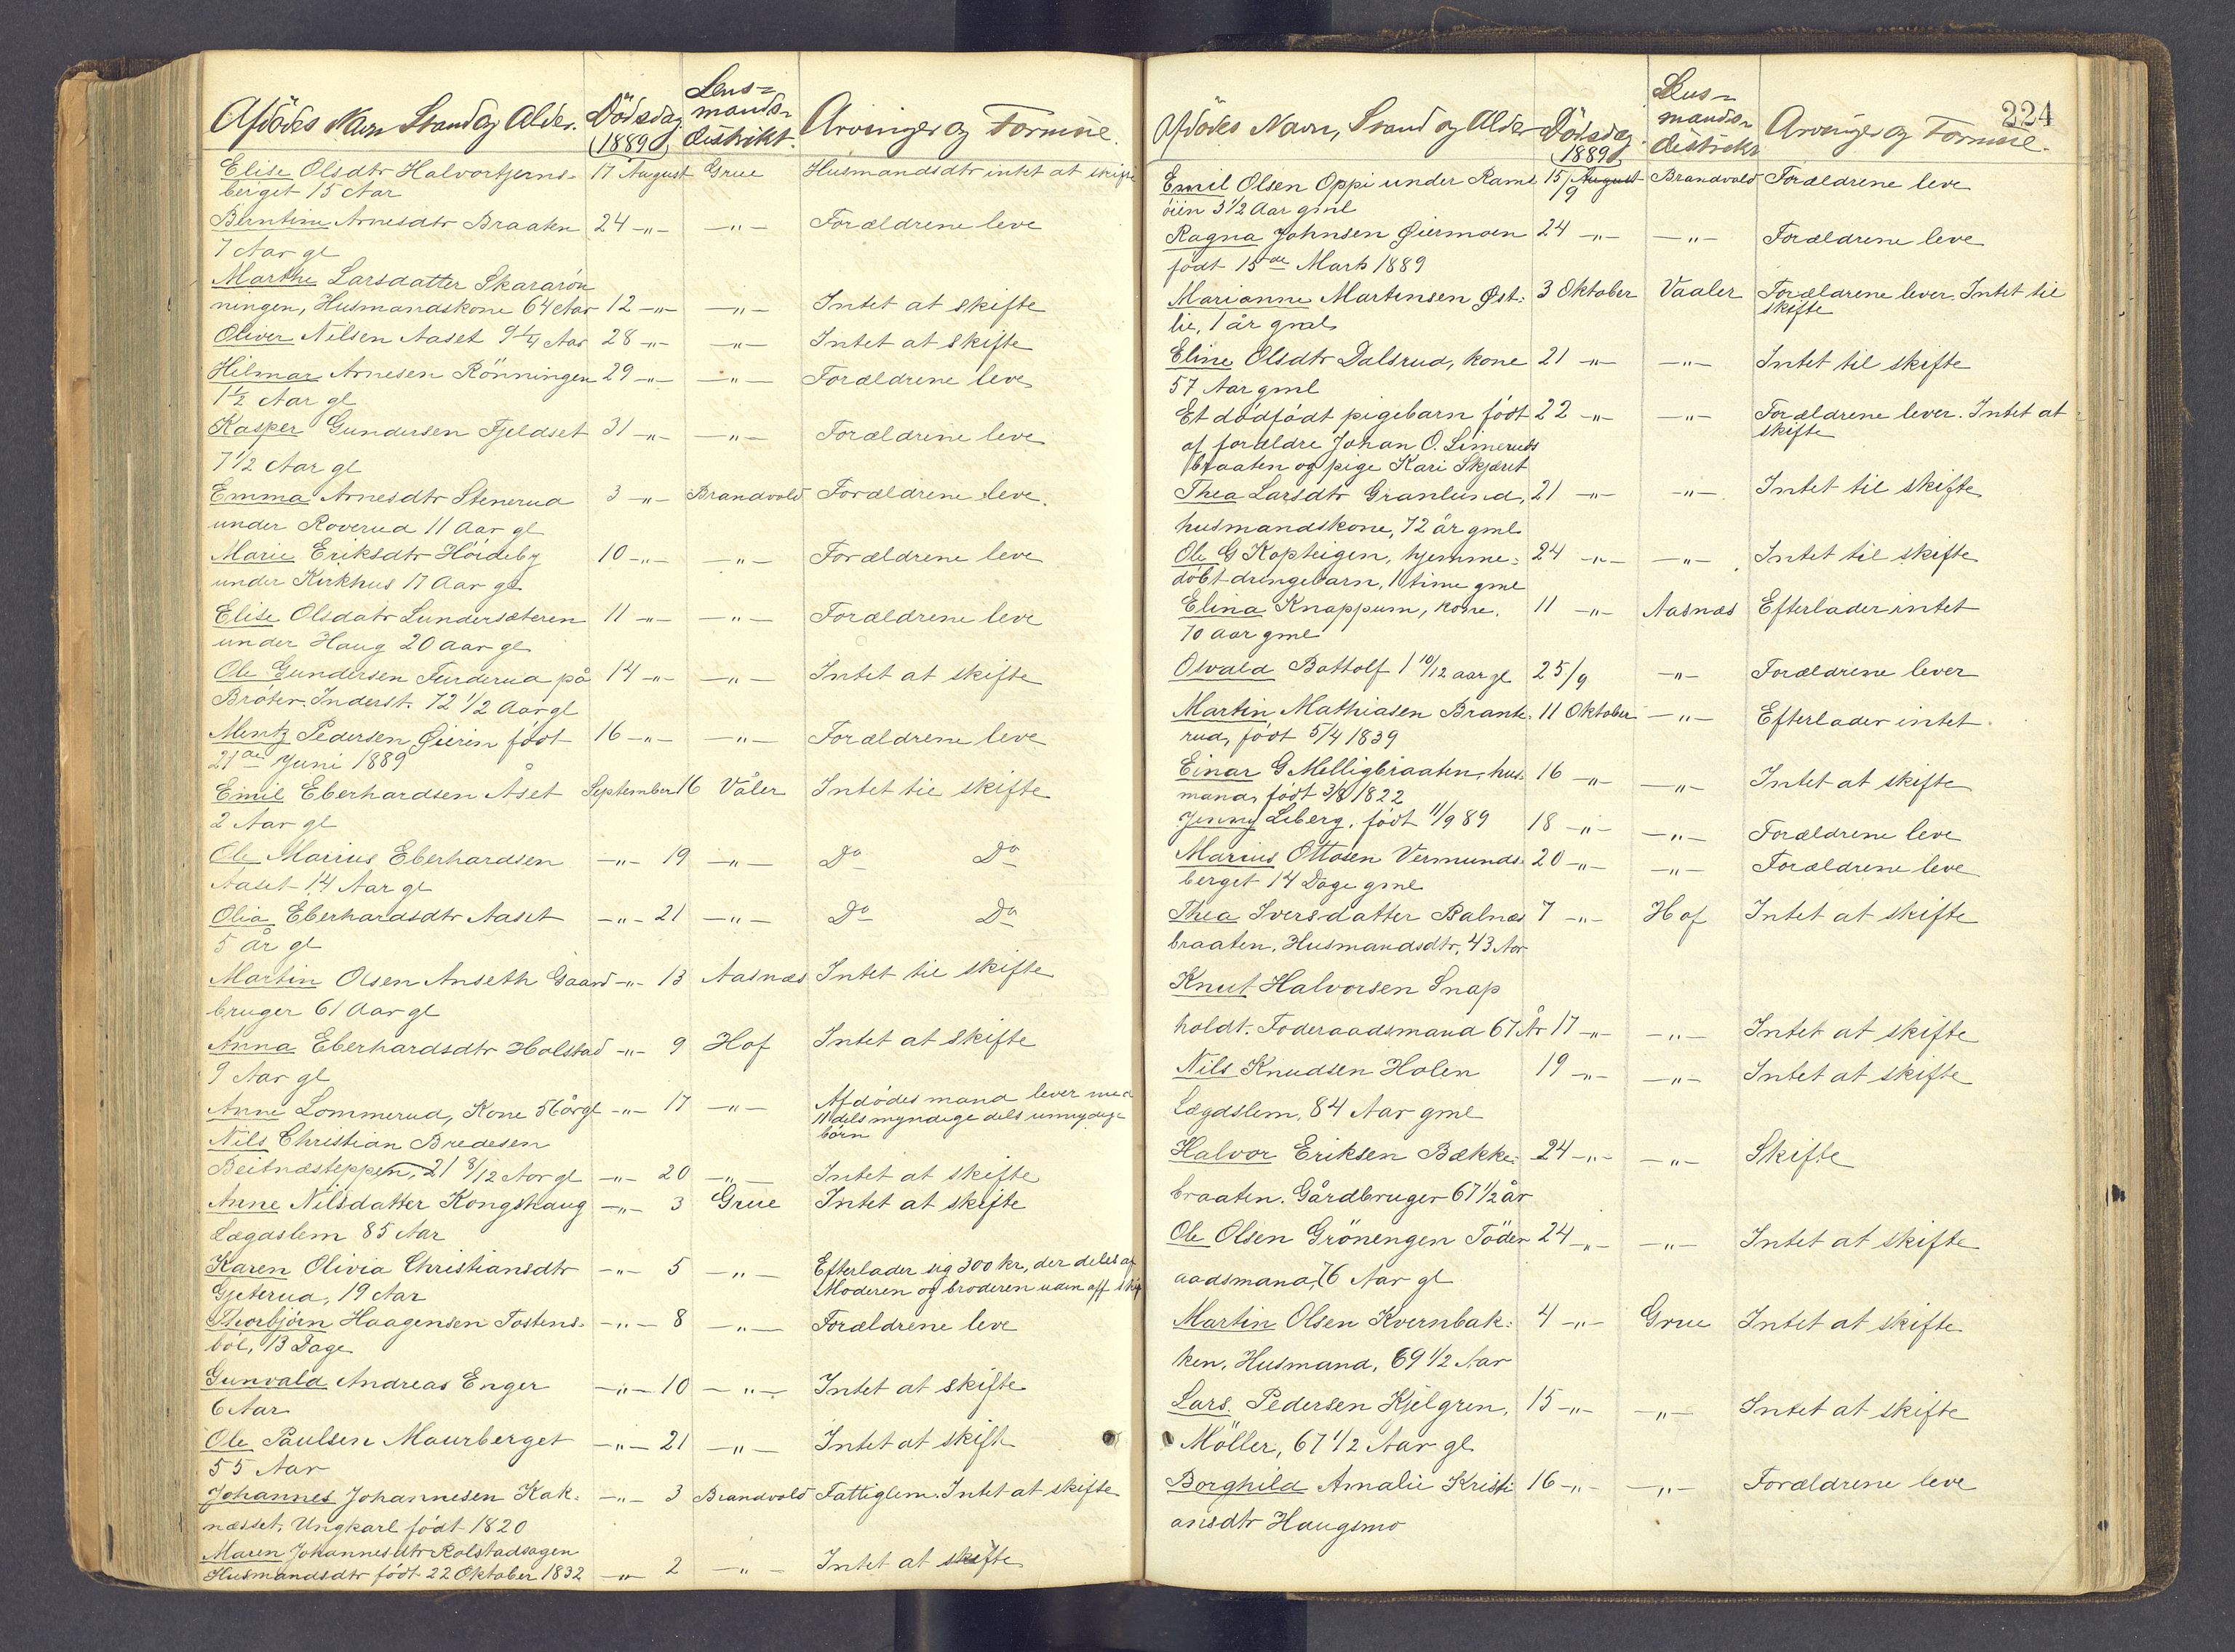 Afdödes Navn Stand og Alder. Dödsdag 1889 Lens= mands= distrikt. Arvinger og Formue.
Elise Olsdtr Halvortjerns- 17 August Grue Husmandsdtr intet at skifte
berget 15 Aar
Berntine Arnesdtr Braaten 24 -"- -"- Forældrene leve
7 Aar gl
Marthe Larsdatter Skararön
ningen, Husmandskone 64 Aar 12 -"- -"- Intet at skifte
Oliver Nilsen Aaset 9 1/4 Aar 28 -"- -"- Intet at skifte
Hilmar Arnesen Rönningen 29 -"- -"- Forældrene leve
1 1/2 Aar gl
Kasper Gundersen Fjeldset 31 -"- -"- Forældrene leve
7 1/2 Aar gl
Emma Arnesdtr Stenerud 3 -"- Brandvold Forældrene leve.
under Roverud 11 Aar gl
Marie Eriksdtr Höideby 10 -"- -"- Forældrene leve
under Kirkhus 17 Aar gl
Elise Olsdatr Lundersæteren 11 -"- -"- Forældrene leve
under Haug 20 aar gl
Ole Gundersen Furderud på 14 -"- -"- Intet at skifte
Bråten. Inderst. 72 1/2 Aar gl
Mentz Pedersen Öieren födt 16 -"- -"- Forældrene leve
21de Juni 1889
Emil Eberhardsen Åset September 16 Våler Intet til skifte
2 Aar gl
Ole Marius Eberhardsen -"- 19 -"- Do Do
Aaset 14 Aar gl
Olia Eberhardsdtr Aaset -"- 21 -"- Do Do
5 år gl
Martin Olsen Anseth Gaard -"- 13 Aasnæs Intet til skifte
bruger 61 Aar gl
Anna Eberhardsdtr Holstad -"- 9 Hof Intet at skifte
9 Aar gl
Anne Lommerud, Kone 56 år gl -"- 17 -"- Afdödes mand lever med
11 dels myndige dels umyndige
börn
Nils Christian Bredesen
Beitnæsteppen, 21 8/12 Aar gl -"- 20 -"- Intet at skifte
Anne Nilsdatter Kongshaug -"- 3 Grue Intet at skifte
Lægdslem 85 Aar
Karen Olivia Christiansdtr -"- 5 -"- Efterlader sig 300 kr, der deles af
Gjeterud, 19 Aar Moderen og broderen uden off skif
Thorbjörn Haagensen Tostens- -"- 8 -"- Forældrene leve
böl, 13 Dage
Gunvald Andreas Enger -"- 10 -"- Intet at skifte
6 Aar
Ole Paulsen Maurberget -"- 21 -"- Intet at skifte
55 Aar
Johannes Johannesen Kak- -"- 3 Brandvold Fattiglem. Intet at skifte
næsset, Ungkarl födt 1820
Maren Johannesdtr Rolstadsagen
Husmandsdtr födt 22 Oktober 1832 -"- 2 -"- Intet at skifte
224
Afdödes Navn, Stand og Alder Dödsdag 1889 Lens= mands= distrikt Arvinger og Formue.
Emil Olsen Oppi under Rams 15/9 August Brandvold Forældrene leve
öien 3 1/2 Aar gml
Ragna Johnsen Øiermoen 24 -"- -"- Forældrene leve
födt 15de Marts 1889
Marianne Martinsen Øst- 3 Oktober Vaaler Forældrene lever. Intet til
lie, 1 år gml. skifte
Eline Olsdtr Dalsrud, kone 21 -"- -"- Intet til skifte
57 Aar gml
Et dödfödt pigebarn födt 22 -"- -"- Forældrene lever. Intet at
af forældre Johan O. Limeruds skifte
braaten og pige Kari Skjæret
Thea Larsdtr Granlund, 21 -"- -"- Intet til skifte
husmandskone, 72 år gml
Ole G Kopteigen, hjemme- 24 -"- -"- Intet til skifte
döbt drengebarn, 1 time gml
Elina Knappum, kone. 11 -"- Aasnæs Efterlader intet
70 aar gml
Osvald Bottolf 1 10/12 aar gl 25/9 -"- Forældrene lever
Martin Mathiasen Brante- 11 Oktober -"- Efterlader intet.
rud, födt 5/4 1839
Einar G Melligbraaten, hus- 16 -"- -"- Intet at skifte
mand, födt 3/8 1822
Jenny Liberg, födt 11/9 89 18 -"- -"- Forældrene leve
Marius Ottosen Vermunds- 20 -"- -"- Forældrene leve
berget 14 Dage gml
Thea Iversdatter Balnæs 7 -"- Hof Intet at skifte
braaten, Husmandsdtr, 43 Aar
Knut Halvorsen Snap
holdt. Foderaadsmand 67 År 17 -"- -"- Intet at skifte
Nils Knudsen Holen 19 -"- -"- Intet at skifte
Lægdslem, 84 Aar gml
Halvor Eriksen Bække- 24 -"- -"- Skifte
braaten. Gårdbruger 67 1/2 år
Ole Olsen Grönengen Föder 24 -"- -"- Intet at skifte
aadsmand, 76 Aar gl
Martin Olsen Kvernbak- 4 -"- Grue Intet at skifte
ken, Husmand, 69 1/2 Aar
Lars Pedersen Kjelgren, 15 -"- -"- Intet at skifte
Möller, 67 1/2 Aar gl
Borghild Amalie Kristi- 16 -"- -"- Forældrene leve
ansdtr Haugsmo